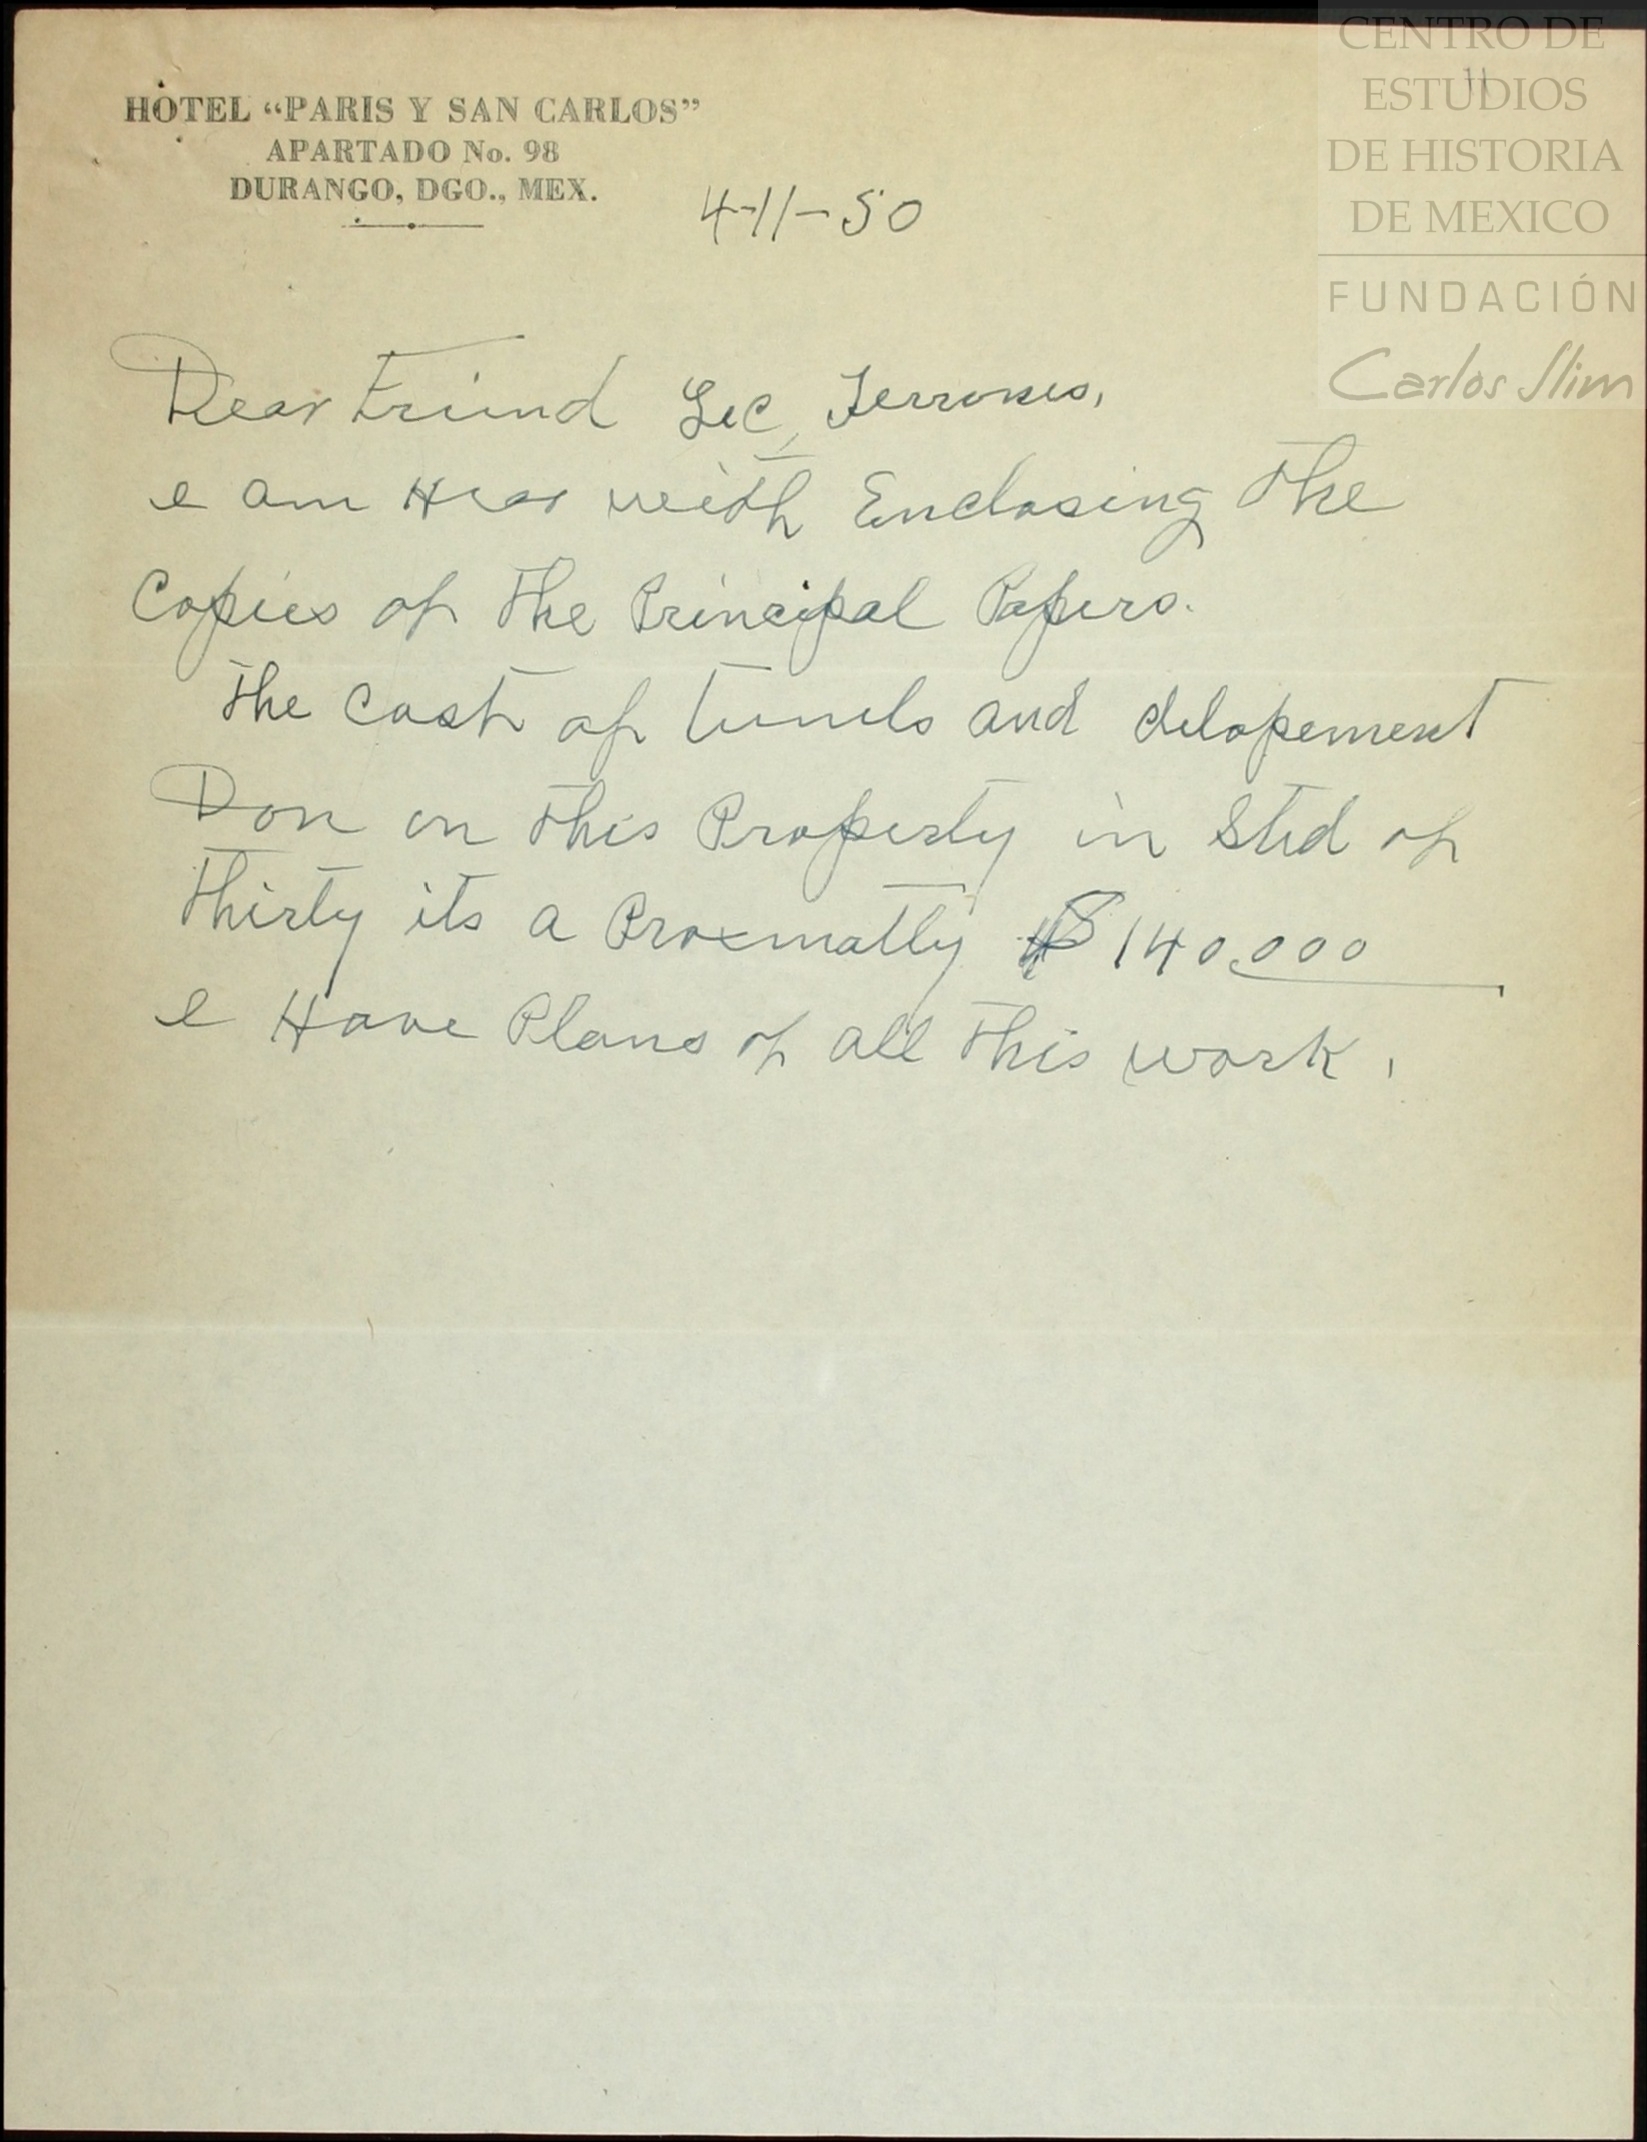 HOTEL “PARIS Y SAN CARLOS”
APARTADO No. 98
DURANGO, DGO., MEX.
4-11-50
CENTRO DE
ESTUDIOS
DE HISTORIA
DE MEXICO
FUNDACIÓN
Carlos Slim
11
Dear Friend Lic, Terrones,
I am Hear with Enclosing the
Copies of the Principal Papers.
The Cost of tunels and delopement
Don on this Property in Sted of
thirty its a Proxmatly $140,000
I Have Plans of all this work.